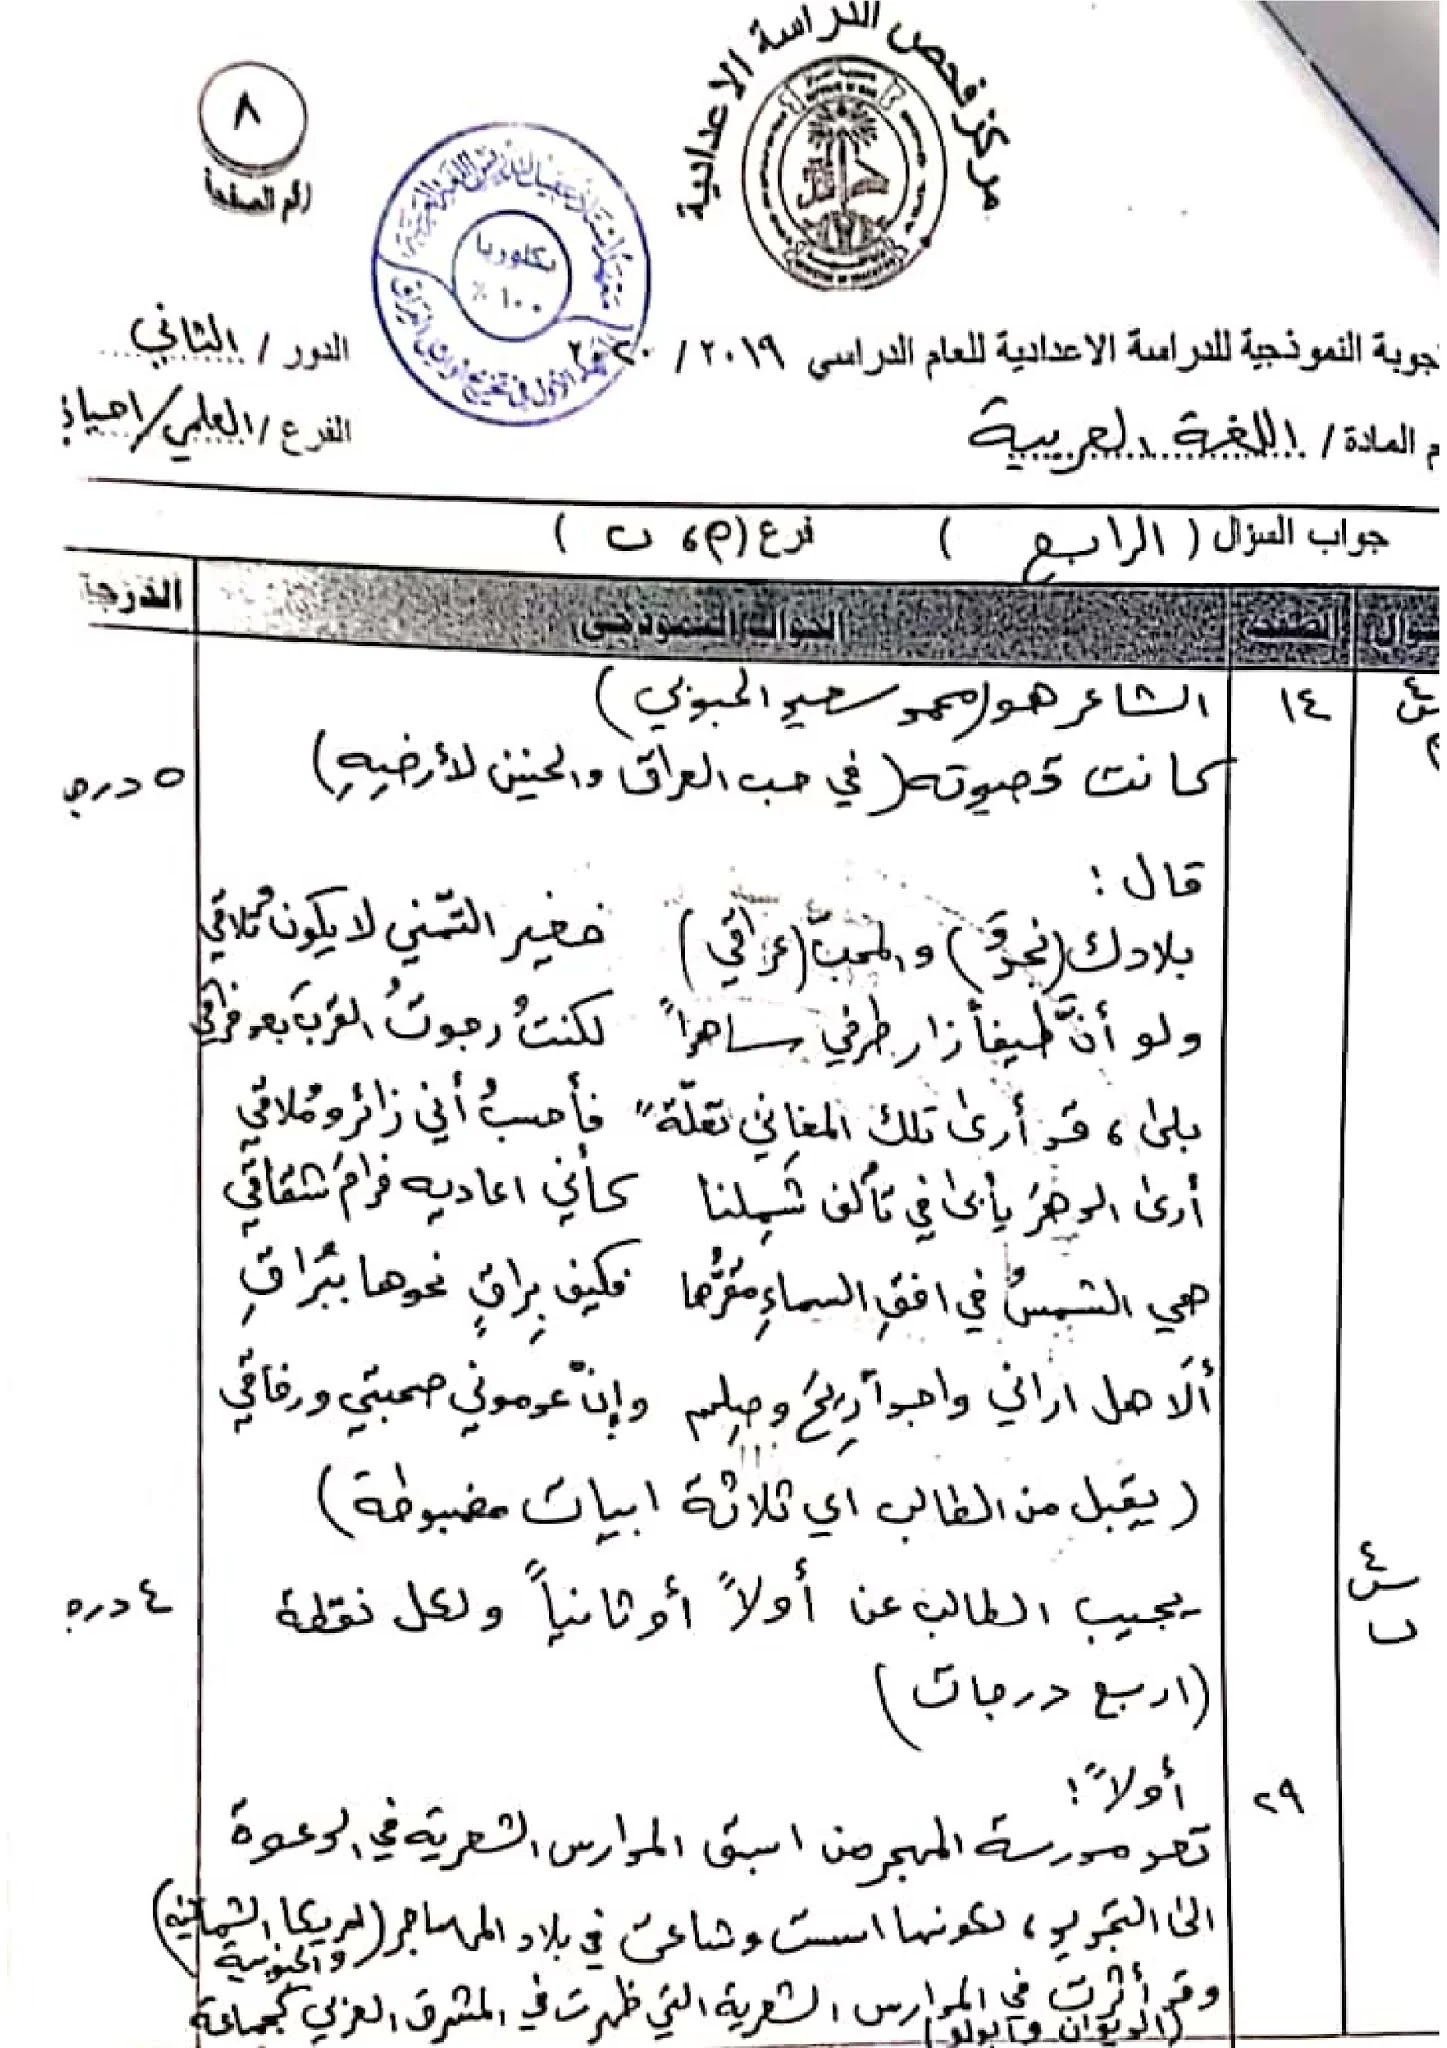 مركز فحص الدراسة الاعدادية
٨
رقم الصفحة
بكلوريا
١٠٠ %
جوبة النموذجية للدراسة الاعدادية للعام الدراسي ٢٠١٩ / ٢٠٢٠
الدور / الثاني
م المادة / اللغة العربية
الفرع / العلمي / احيائي
جواب السؤال ( الرابع ) فرع ( م ، ب )
الصفحة الجواب النموذجي الدرجة
س٤ ١٤ الشاعر هو (محمد سعيد الحبوبي)
كانت قصيدته ( في حب العراق والحنين لأرضِهِ) ٥ درجة
قال :
بلادك (نجدٌ) والمحبّ (عراقي) فغير التمّني لا يكون تُلاقي
ولو أنَّ طيفاً زار طرفي ساهراً لكنتُ رجوتُ القربَ بعد فراقي
بلى ، قد أرى تلك المغاني تعلّةً فأحسبُ أني زائر وملاقي
أرى الدهرَ يأبى في تألف شَمِلنا كأني اعاديه فرامَ شقاقي
هي الشمسُ في افقِ السماءِ مقرُّها فكيف براقٍ نحوها ببُراقِ
ألَا هل اراني واجداً ريحَ وصلِهم وإنْ عدموني صحبتي ورفاقي
( يقبل من الطالب اي ثلاثة ابيات مضبوطة )
س٤ ب يجيب الطالب عن أولاً أو ثانياً ولكل نقطة ٤ درجة
(اربع درجات )
٢٩ أولاً :
تعد مدرسة المهجر من اسبق المدارس الشعرية في الدعوة
الى التجديد ، لكونها اسست وشاعت في بلاد المهاجر (امريكا الشمالية
والجنوبية)
وقد أثرت في المدارس الشعرية التي ظهرت في المشرق العربي كجماعة
(الديوان وأبولو)